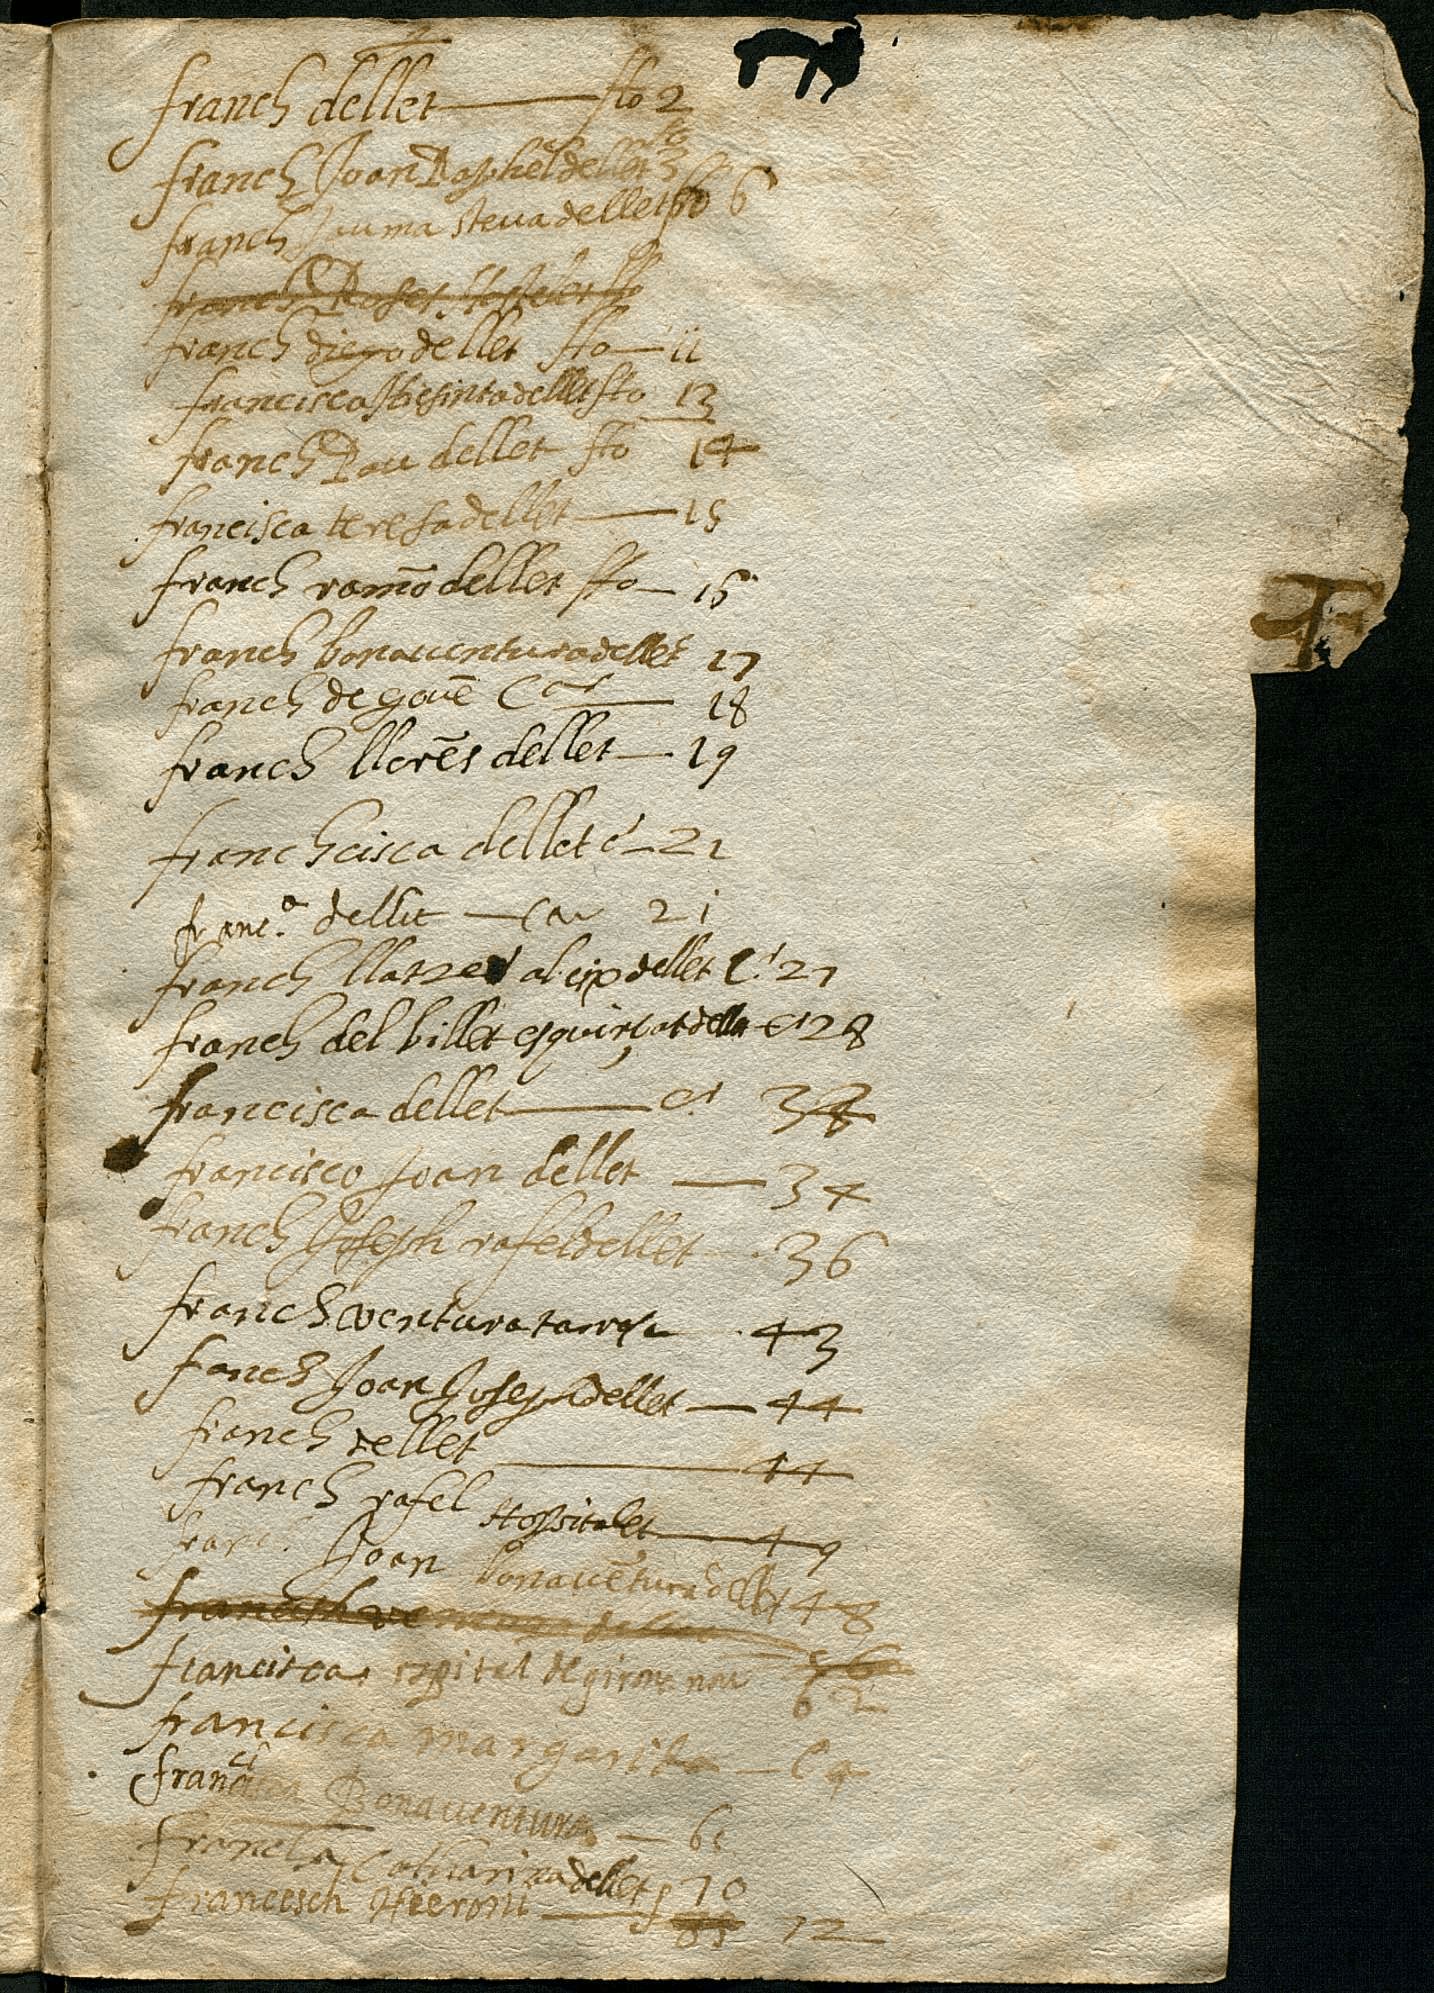 franch dellet — ffo 2
franch Joan Raphel dellet ffo 3
franch Jauma steva dellet ffo 6
franch ffo
franch diego dellet ffo — 11
francisca Jhesinta dellet ffo 13
franch Pau dellet ffo 14
francisca teresa dellet — 15
franch ramō dellet ffo — 16
franch bonaventura dellet 17
franch de gouē Car — 18
franch llorēs dellet — 19
franchcisca dellet C' 21
franc.ᵃ dellet — Car 21
franch llatzer dellet C' 27
franch del billet esquinsat dellet C' 28
francisca dellet — C'
francisco Joan dellet — 34
franch Joseph rafel dellet — 36
franch ventura 43
fanch Joan Joseph dellet — 44
franch dellet — 44
franch rafel Hospitalet — 49
franch Joan bonavētura dellet 48
franch ventura
56
francisca spital de girona nou 62
francisca margarita —
francisca Bonaventura — 6
Catharina dellet f 70
francesch Hieroni — f 72
F